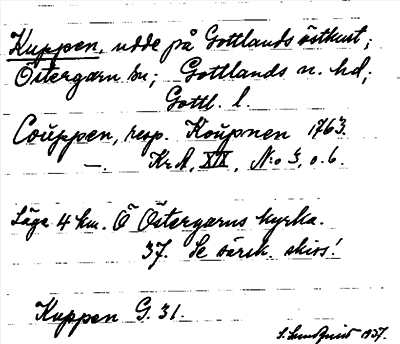 Kuppen, udde på Gottlands östkust;
Östergarn sn; Gottlands n. hd;
Gottl. l.
Coúppen, resp. Koúpnen 1763.
—. Kr A, XIX, No 3, o. 6.
Läge 4 km. Ö Östergarns kyrka.
37. Se särsk. skiss!
Kuppen G. 31.
S. Sundquist 1937.